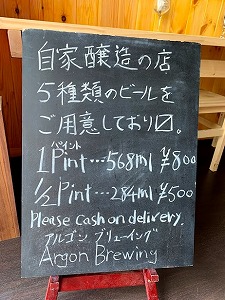 自家醸造の店
5種類のビールを
ご用意しており〼。
パイント
1Pint…568ml ¥800
½Pint…284ml ¥500
Please cash on delivery.
アルゴン ブリューイング
Argon Brewing